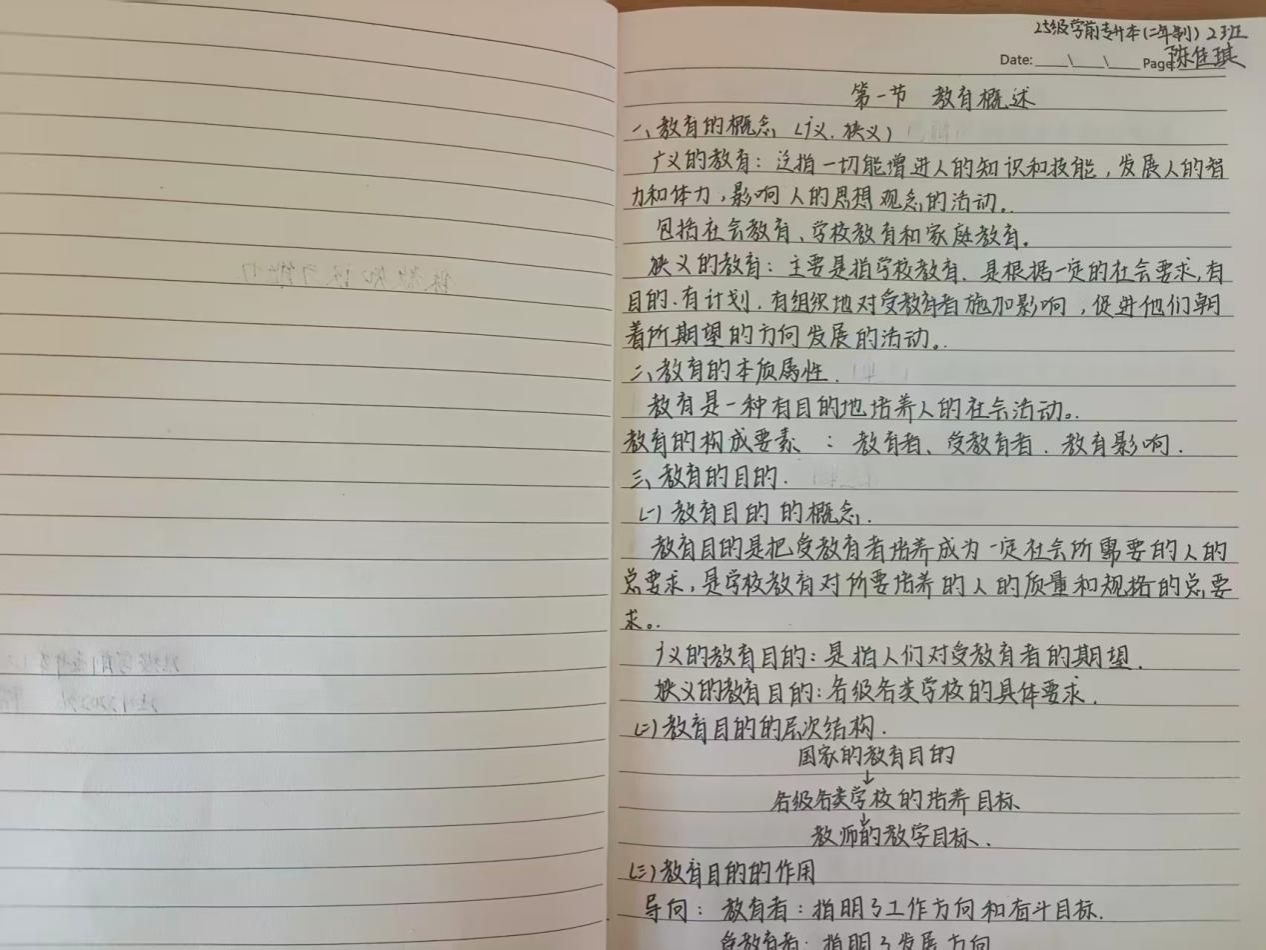 25级学前专升本(二年制) 23班
Date: ____\____\____ Page: 陈佳琪
第一节 教育概述
一、教育的概念（广义、狭义）
广义的教育：泛指一切能增进人的知识和技能，发展人的智
力和体力，影响人的思想观念的活动。
包括社会教育、学校教育和家庭教育.
狭义的教育：主要是指学校教育、是根据一定的社会要求,有
目的.有计划.有组织地对受教育者施加影响，促进他们朝
着所期望的方向发展的活动。
二、教育的本质属性.
教育是一种有目的地培养人的社会活动。
教育的构成要素 ：教育者、受教育者.教育影响.
三、教育的目的.
(一)教育目的的概念.
教育目的是把受教育者培养成为一定社会所需要的人的
总要求,是学校教育对所要培养的人的质量和规格的总要
求。
广义的教育目的:是指人们对受教育者的期望.
狭义的教育目的:各级各类学校的具体要求.
(二)教育目的的层次结构.
国家的教育目的
↓
各级各类学校的培养目标
↓
教师的教学目标.
(三)教育目的的作用
导向：教育者：指明了工作方向和奋斗目标.
受教育者：指明了发展方向